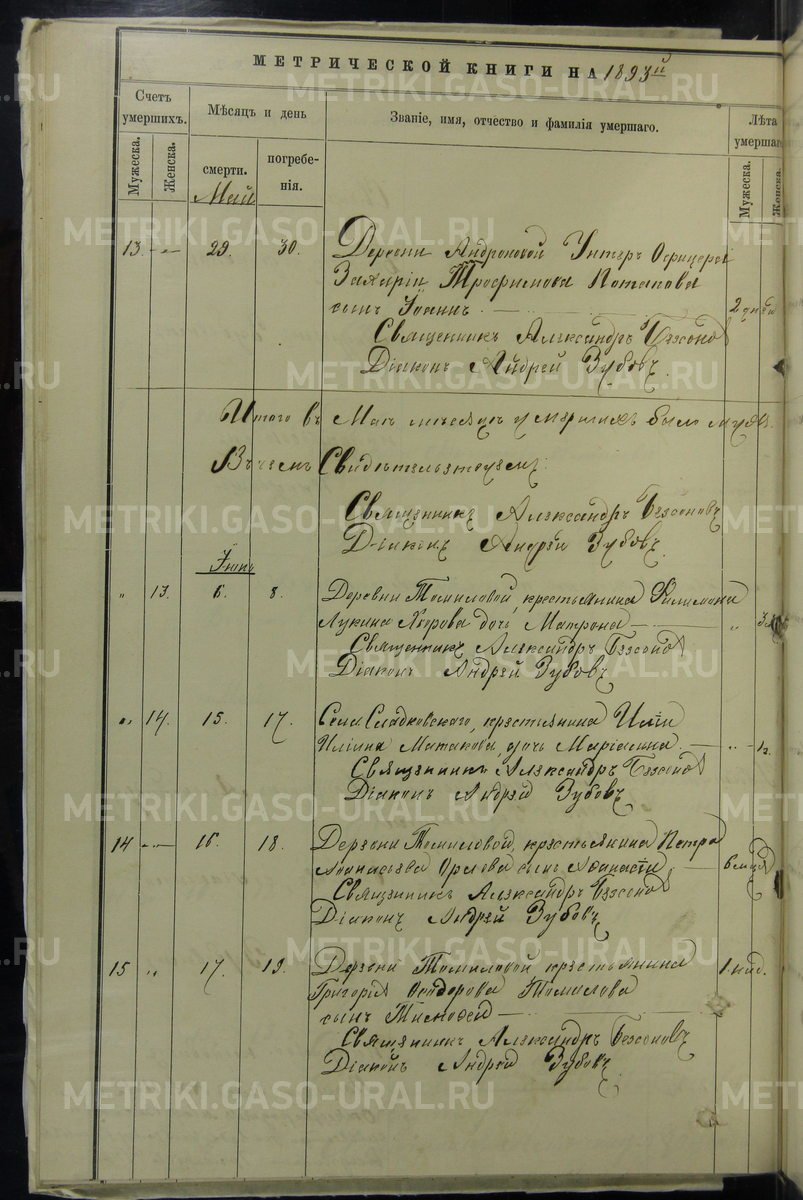 МЕТРИЧЕСКОЙ КНИГИ НА 1893й
Счетъ умершихъ.
Мѣсяцъ и день
Званіе, имя, отчество и фамилія умершаго.
Лѣта умершаго
Мужеска.
Женска.
смерти.
погребенія.
Мужеска.
Женска.
Май
13. 29. 30. Деревни Андроновой Унтеръ Офицера
Захаріи Трофимова Потапова
сынъ Іоаннъ 2 дня
Священникъ Александръ Безсоновъ
Діаконъ Андрей Зубовъ
Итого въ Маѣ мѣсяцѣ умершихъ было
Въ чемъ Свидѣтельствуемъ:
Священникъ Александръ Безсоновъ
Діаконъ Андрей Зубовъ
Іюнь
" 13. 6. 8. Деревни Томиловой, крестьянина Филимона
Лукина дочь Матрона "
Священникъ Александръ Безсоновъ
Діаконъ Андрей Зубовъ
" 14. 15. 17. Села Сладковскаго, крестьянина Иліи
Иліина дочь Маріанна " 1г.
Священникъ Александръ Безсоновъ
Діаконъ Андрей Зубовъ
14 16. 18. Деревни Томиловой, крестьянина Петра
Аѳанасьева Орлова сынъ Аѳанасій
Священникъ Александръ Безсоновъ
Діаконъ Андрей Зубовъ
15 " 17. 19. Деревни Томиловой крестьянина 1. нед.
Григорія Ѳеодорова Томилова
сынъ Тимоѳей
Священникъ Александръ Безсоновъ
Діаконъ Андрей Зубовъ
METRIKI.GASO-URAL.RU